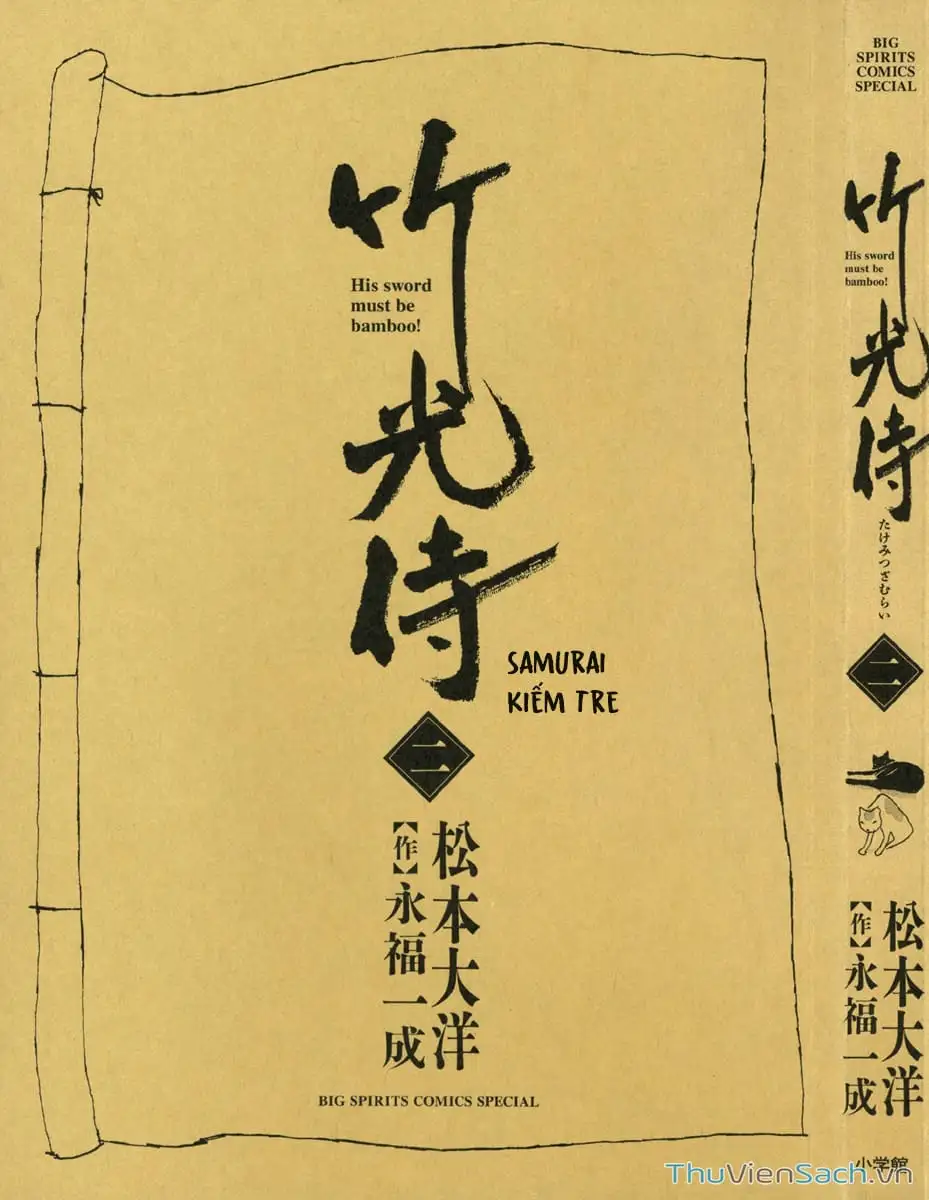 竹光侍
His sword
must be
bamboo!
SAMURAI
KIẾM TRE
二
松本大洋
【作】永福一成
BIG SPIRITS COMICS SPECIAL
BIG
SPIRITS
COMICS
SPECIAL
竹光侍
His sword
must be
bamboo!
たけみつざむらい
二
松本大洋
【作】永福一成
小学館
ThuVienSach.vn